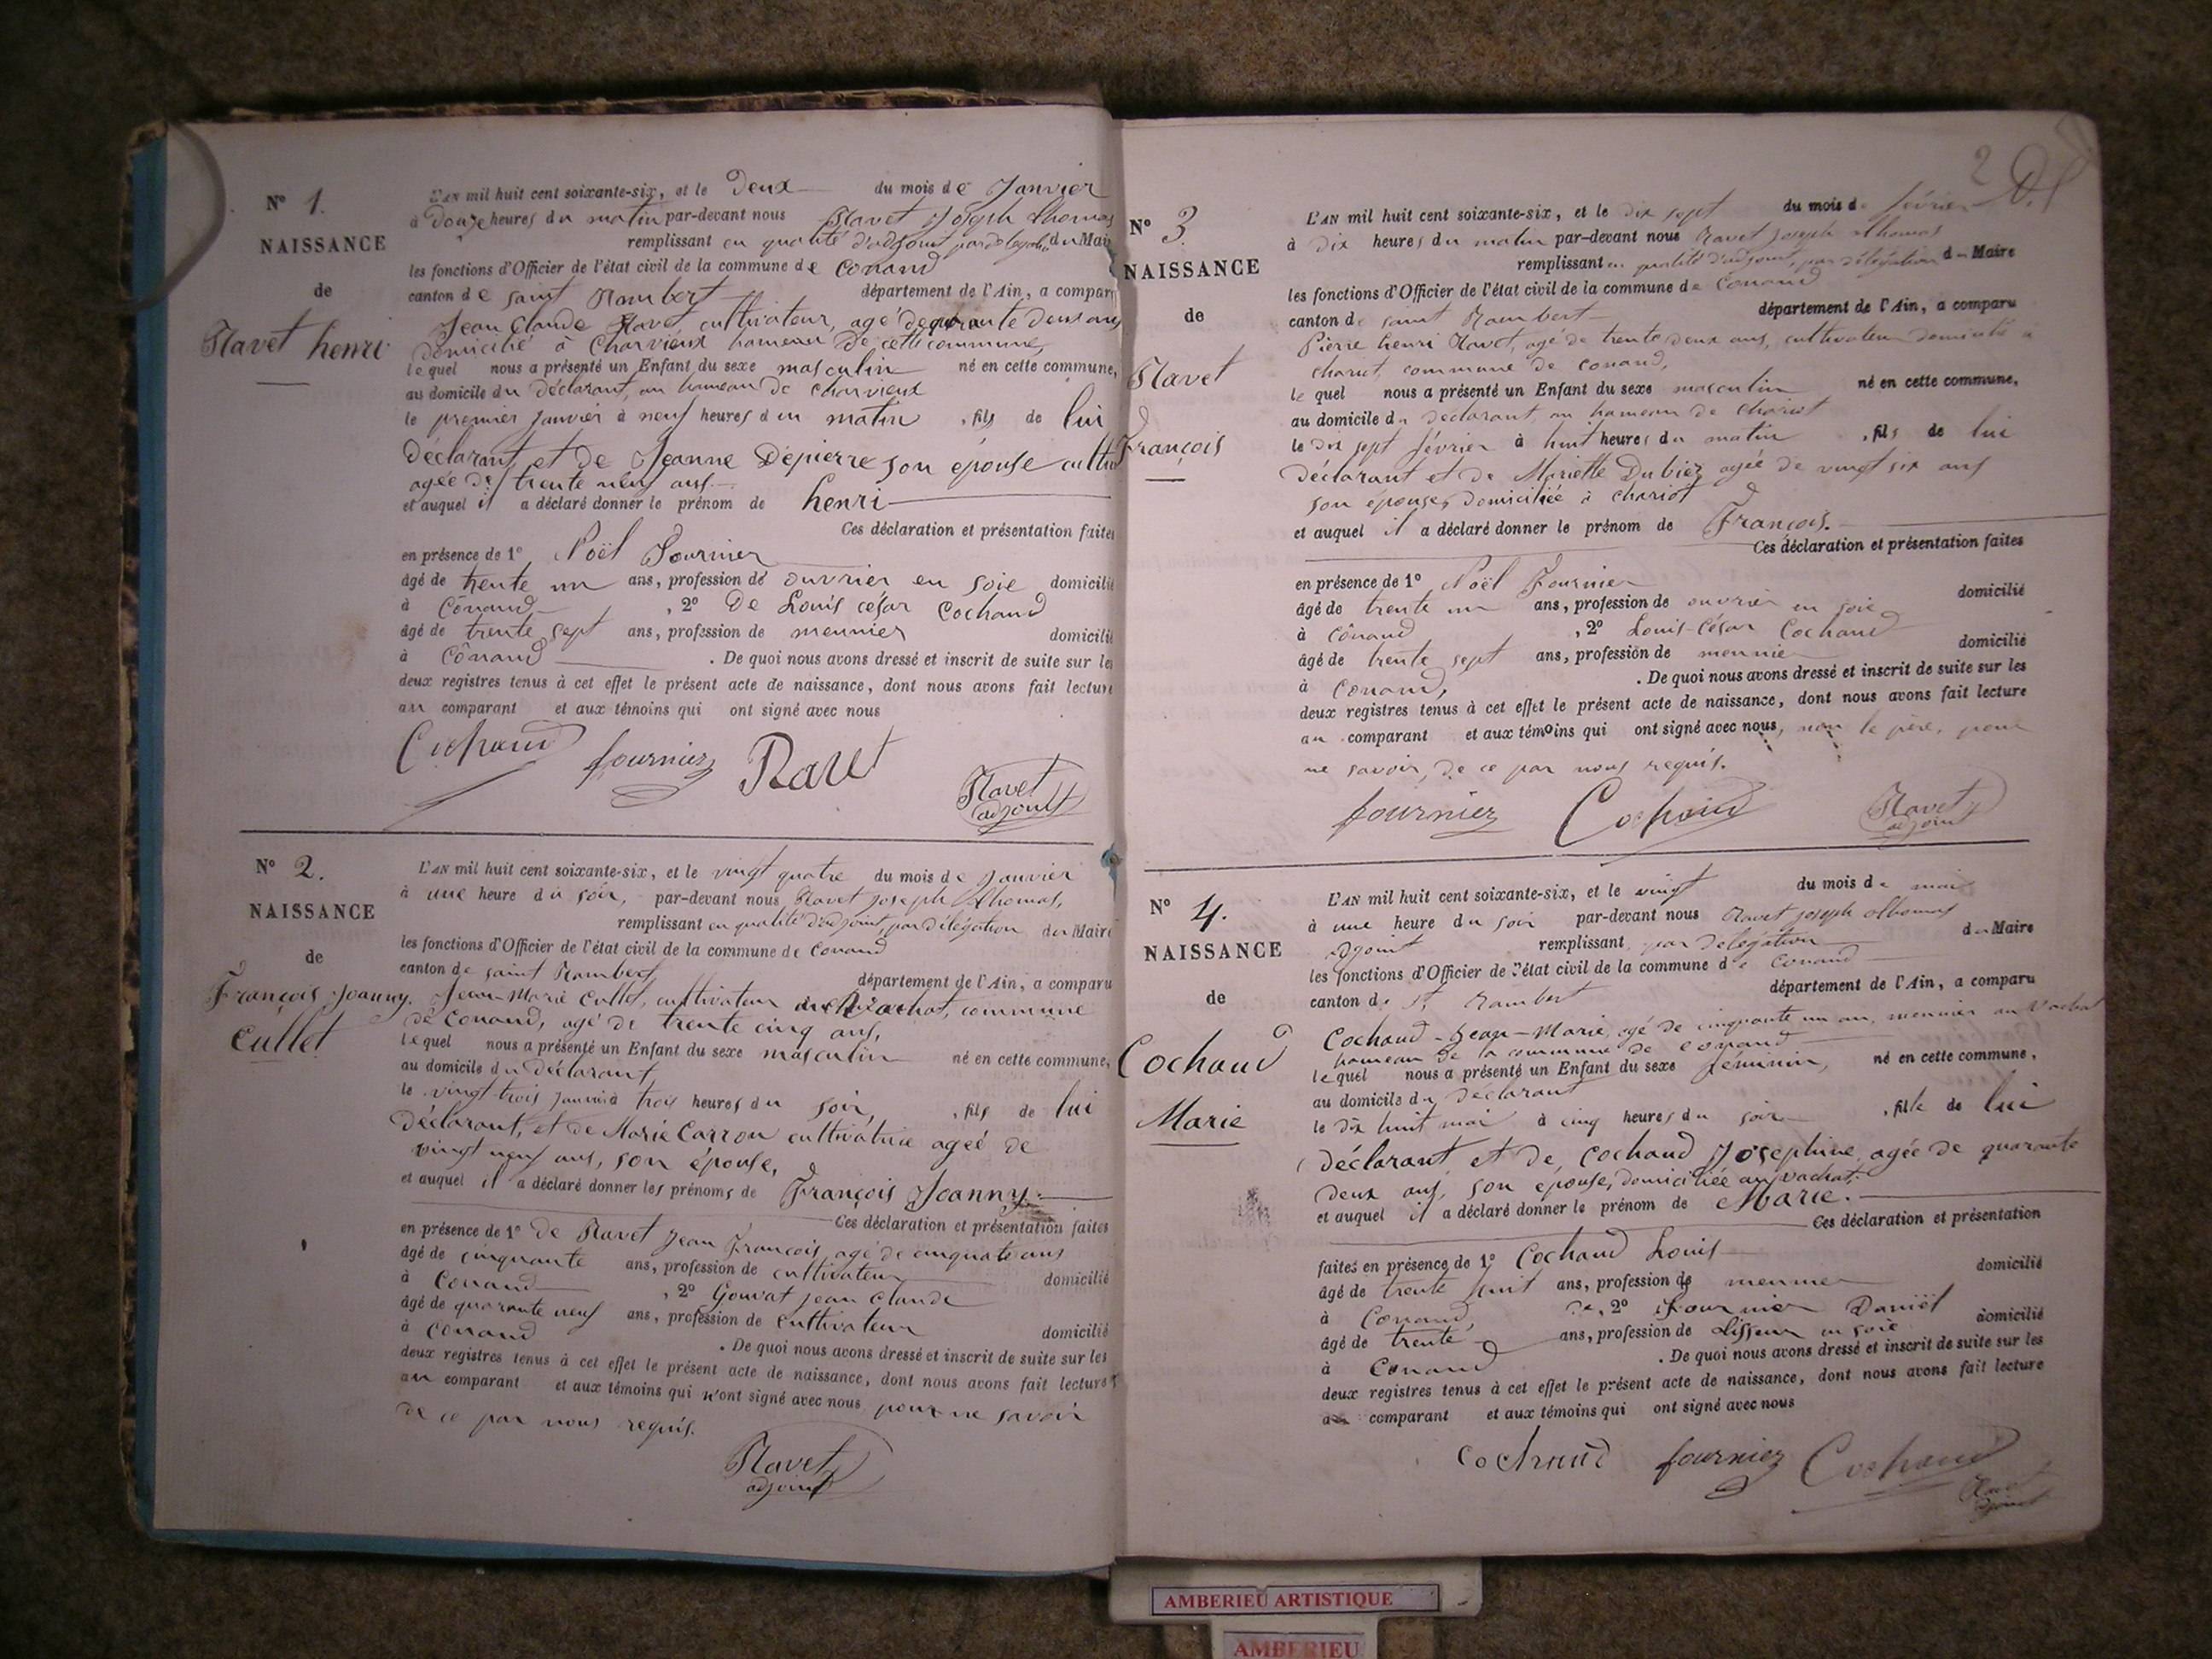 N° 1.
NAISSANCE
de
Ravet henri
L'AN mil huit cent soixante-six, et le Deux du mois de Janvier
à Douze heures du matin par-devant nous Ravet Joseph Thomas
remplissant en qualité d'adjoint par délégation du Mair
les fonctions d'Officier de l'état civil de la commune de Conand
canton de saint Rambert département de l'Ain, a compar
Jean Claude Ravet cultivateur, agé de quarante deux ans
domicilié à Charvieux hameau de cette commune,
lequel nous a présenté un Enfant du sexe masculin né en cette commune,
au domicile du déclarant, au hameau de Charvieux
le premier Janvier à neuf heures du matin , fils de lui
Déclarant, et de Jeanne Dépierre son épouse cultiv
agée de trente neuf ans
et auquel il a déclaré donner le prénom de henri
Ces déclaration et présentation faites
en présence de 1° Noël Fournier
âgé de trente un ans, profession de ouvrier en soie domicilié
à Cônand , 2° De Louis césar Cochand
âgé de trente sept ans, profession de meunier domicilié
à Cônand . De quoi nous avons dressé et inscrit de suite sur les
deux registres tenus à cet effet le présent acte de naissance, dont nous avons fait lecture
au comparant et aux témoins qui ont signé avec nous
Cochand fournier Ravet Ravet
adjoint
N° 2.
NAISSANCE
de
François Joanny.
Cullet
L'AN mil huit cent soixante-six, et le vingt quatre du mois de Janvier
à une heure du soir, par-devant nous Ravet Joseph Thomas,
remplissant en qualité d'adjoint, par délégation du Maire
les fonctions d'Officier de l'état civil de la commune de Conand
canton de saint Rambert, département de l'Ain, a comparu
Jean-Marie Cullet, cultivateur au Vachat, commune
de Conand, agé de trente cinq ans,
lequel nous a présenté un Enfant du sexe masculin né en cette commune,
au domicile du Déclarant
le vingt trois Janvier à trois heures du soir, , fils de lui
Déclarant, et de Marie Carron cultivatrice agée de
vingt neuf ans, son épouse,
et auquel il a déclaré donner les prénoms de François Joanny.
Ces déclaration et présentation faites
en présence de 1° de Ravet Jean François, agé de cinquante ans
âgé de cinquante ans, profession de cultivateur domicilié
à Conand , 2° Gouvat Jean Claude
âgé de quarante neuf ans, profession de cultivateur domicilié
à Conand . De quoi nous avons dressé et inscrit de suite sur les
deux registres tenus à cet effet le présent acte de naissance, dont nous avons fait lecture
au comparant et aux témoins qui n'ont signé avec nous pour ne savoir
de ce par nous requis.
Ravet
adjoint
2
N° 3.
NAISSANCE
de
Ravet
François
L'AN mil huit cent soixante-six, et le dix sept du mois de février
à dix heures du matin par-devant nous Ravet Joseph Thomas
remplissant en qualité d'adjoint, par délégation du Maire
les fonctions d'Officier de l'état civil de la commune de Conand
canton de saint Rambert département de l'Ain, a comparu
Pierre henri Ravet, agé de trente deux ans, cultivateur domicilié à
chariot commune de conand,
lequel nous a présenté un Enfant du sexe masculin né en cette commune,
au domicile du déclarant, au hameau de chariot
le dix sept février à huit heures du matin , fils de lui
déclarant et de Mariette Dubiez agée de vingt six ans
son épouse, domiciliée à chariot
et auquel il a déclaré donner le prénom de François.
Ces déclaration et présentation faites
en présence de 1° Noël Fournier
âgé de trente un ans, profession de ouvrier en soie domicilié
à Cônand , 2° Louis-César Cochand
âgé de trente sept ans, profession de meunier domicilié
à Conand, . De quoi nous avons dressé et inscrit de suite sur les
deux registres tenus à cet effet le présent acte de naissance, dont nous avons fait lecture
au comparant et aux témoins qui ont signé avec nous, non le père, pour
ne savoir, de ce par nous requis.
fournier Cochand Ravet
adjoint
N° 4.
NAISSANCE
de
Cochand
Marie
L'AN mil huit cent soixante-six, et le vingt du mois de mai
à une heure du soir par-devant nous Ravet Joseph Thomas
adjoint remplissant par délégation du Maire
les fonctions d'Officier de l'état civil de la commune de Conand
canton de St Rambert département de l'Ain, a comparu
Cochand Jean-Marie, agé de cinquante un an, meunier au Vachat
hameau de la commune de conand
lequel nous a présenté un Enfant du sexe féminin, né en cette commune,
au domicile du Déclarant
le dix huit mai à cinq heures du soir , fille de lui
déclarant et de Cochand Josephine, agée de quarante
deux ans, son épouse, domiciliée au Vachat.
et auquel il a déclaré donner le prénom de Marie.
Ces déclaration et présentation
faites en présence de 1° Cochand Louis
âgé de trente huit ans, profession de meunier domicilié
à Conand, De, 2° Fournier Daniël
âgé de trente ans, profession de Lisseur en soie domicilié
à Conand . De quoi nous avons dressé et inscrit de suite sur les
deux registres tenus à cet effet le présent acte de naissance, dont nous avons fait lecture
au comparant et aux témoins qui ont signé avec nous
Cochand fournier Cochand
Ravet
adjoint
AMBERIEU ARTISTIQUE
AMBERIEU